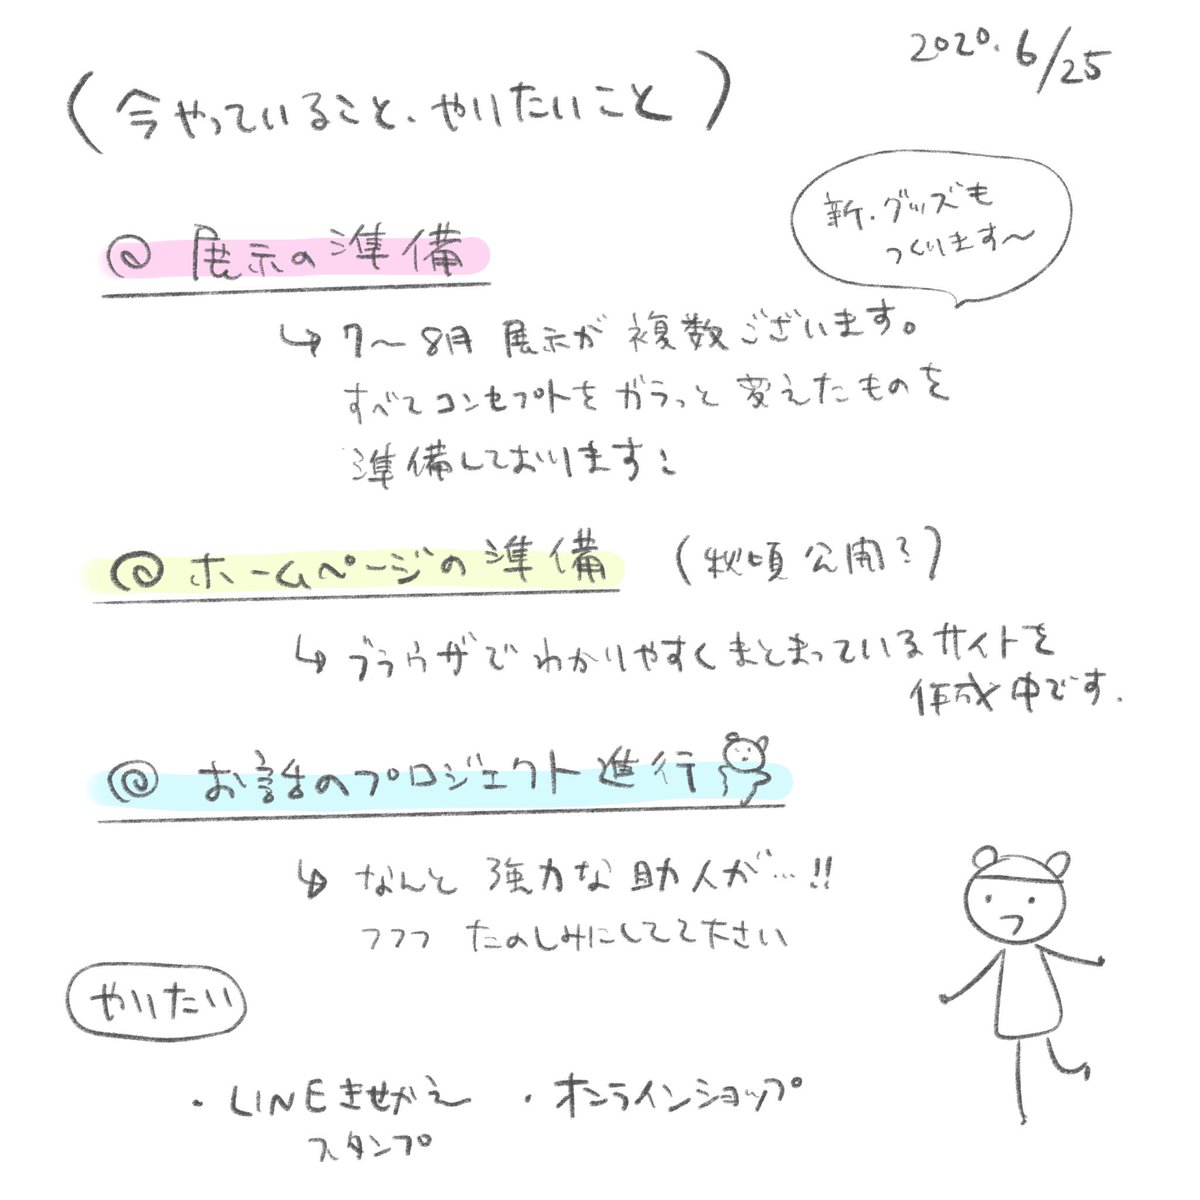 2020. 6/25
(今やっていること、やりたいこと)
新・グッズも
つくります〜
@ 展示の準備
↳ 7〜8月 展示が 複数ございます。
すべてコンセプトを ガラっと 変えたものを
準備しております:
@ ホームページの準備 (秋頃 公開?)
↳ ブラウザで わかりやすく まとまっているサイトを
作成中です.
@ お話のプロジェクト進行
↳ なんと 強力な 助人が…!!
フフフ たのしみにしてて下さい
やりたい
・LINEきせかえ ・オンラインショップ
スタンプ